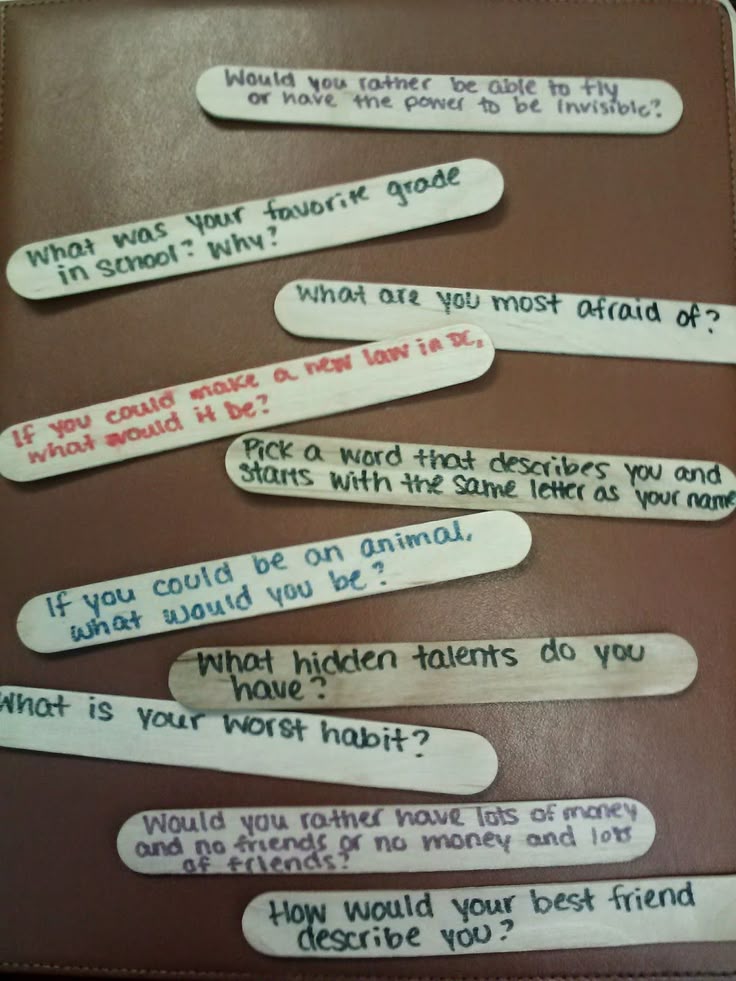 Would you rather be able to fly
or have the power to be invisible?
What was your favorite grade
in school? Why?
What are you most afraid of?
If you could make a new law in DC,
what would it be?
Pick a word that describes you and
starts with the same letter as your name
If you could be an animal,
what would you be?
What hidden talents do you
have?
What is your worst habit?
Would you rather have lots of money
and no friends or no money and lots
of friends?
How would your best friend
describe you?